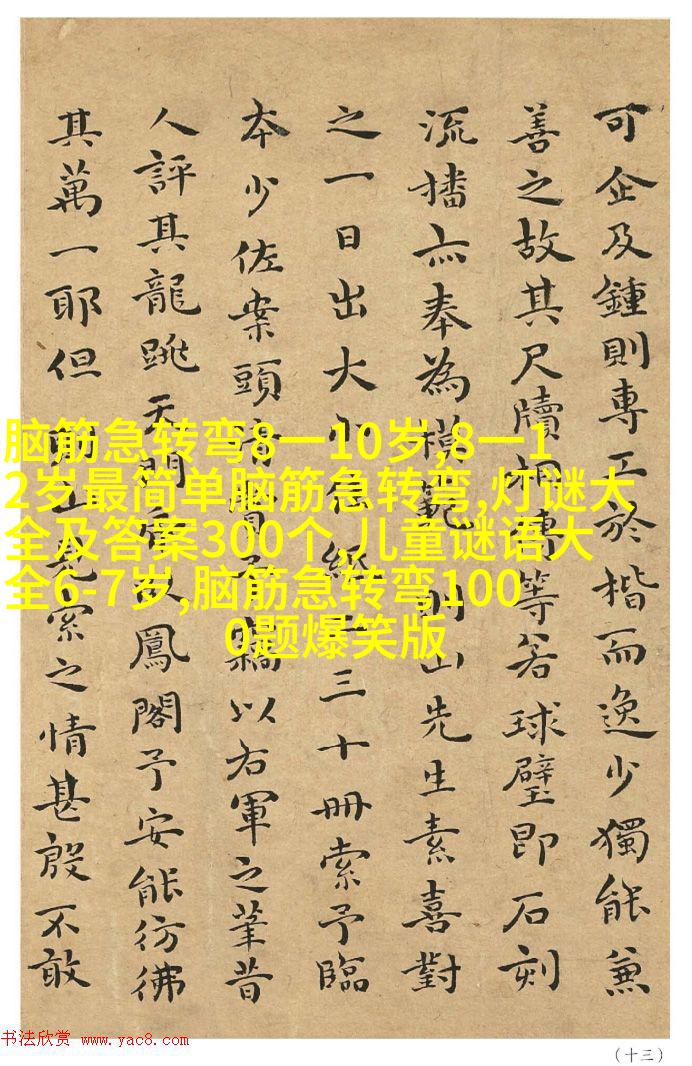 可企及鍾則專工於楷而逸少獨能兼
善之故其尺牘相傳等若球璧即石刻
流播亦奉為模範山先生素喜對
之一日出大小紙三十冊索予臨
本少佐案頭以右軍之筆昔
人評其龍跳天門虎臥鳳閣予安能彷彿
其萬一耶但山見索之情甚殷不敢
脑筋急转弯8一10岁,8一1
2岁最简单脑筋急转弯,灯谜大
全及答案300个,儿童谜语大
全6-7岁,脑筋急转弯100
0题爆笑版
书法欣赏 www.yac8.com
（十三）